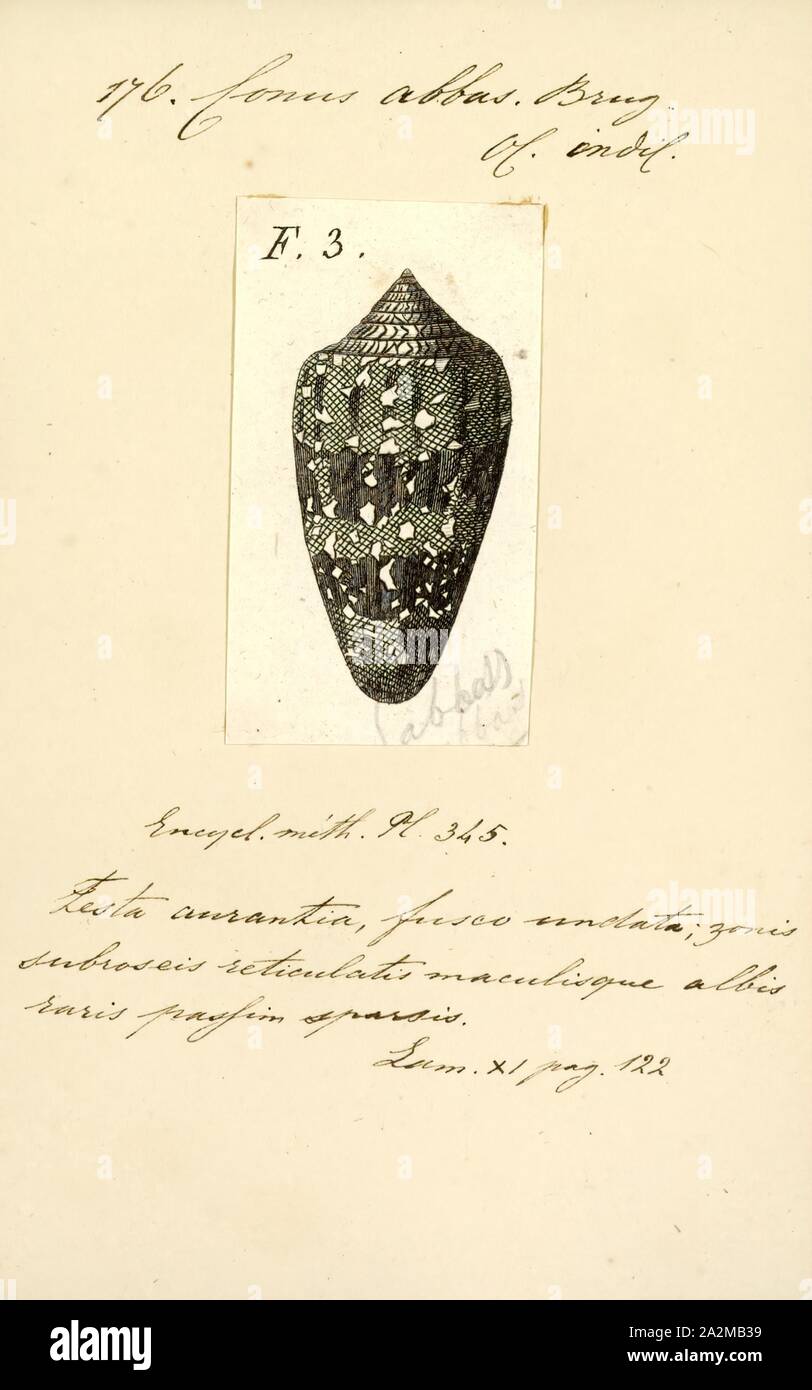 176. Conus abbas. Brug
Oc. indic.
F. 3.
abbas
Encycl. méth. Pl. 345.
Testa aurantia, fusco undata; zonis
subroseis reticulatis maculisque albis
raris passim sparsis.
Lam. XI pag. 122
alamy
Image ID: 2A2MB39
www.alamy.com